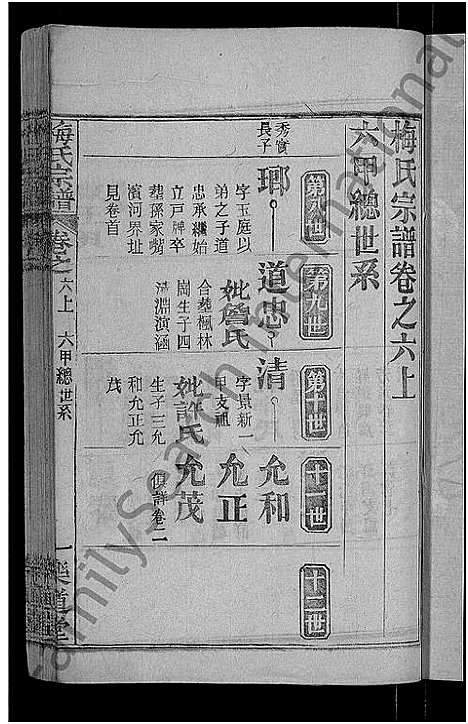 梅氏宗譜卷之六上
六甲總世系
第八世
第九世
第十世
十一世
十二世
秀實
長子
瑯
字玉庭以
弟之子道
忠承繼始
立戶歿卒
塟孫家嘴
濱河界址
見卷首
道忠
妣詹氏
合塟楓林
崗生子四
清淵演涵
清
字景新一
甲支祖
妣許氏
生子三允
和允正允
茂
允和
允正
允茂
俱詳卷二
梅氏宗譜
卷之六上
六甲總世系
一
樂道堂
FamilySearch International